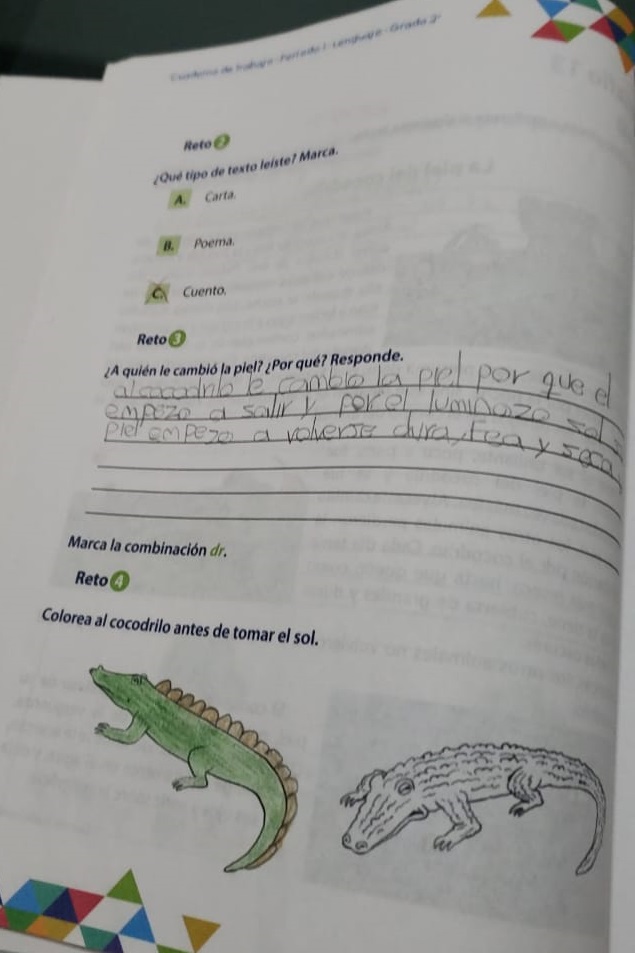 Cuaderno de trabajo - Periodo 1 - Lenguaje - Grado 2°
Reto 2
¿Qué tipo de texto leíste? Marca.
A. Carta.
B. Poema.
C. Cuento.
Reto 3
¿A quién le cambió la piel? ¿Por qué? Responde.
al cocodrilo le cambio la piel por que el
empezo a salir y por el luminozo sol
piel empezo a volverse dura, fea y seca
Marca la combinación dr.
Reto 4
Colorea al cocodrilo antes de tomar el sol.